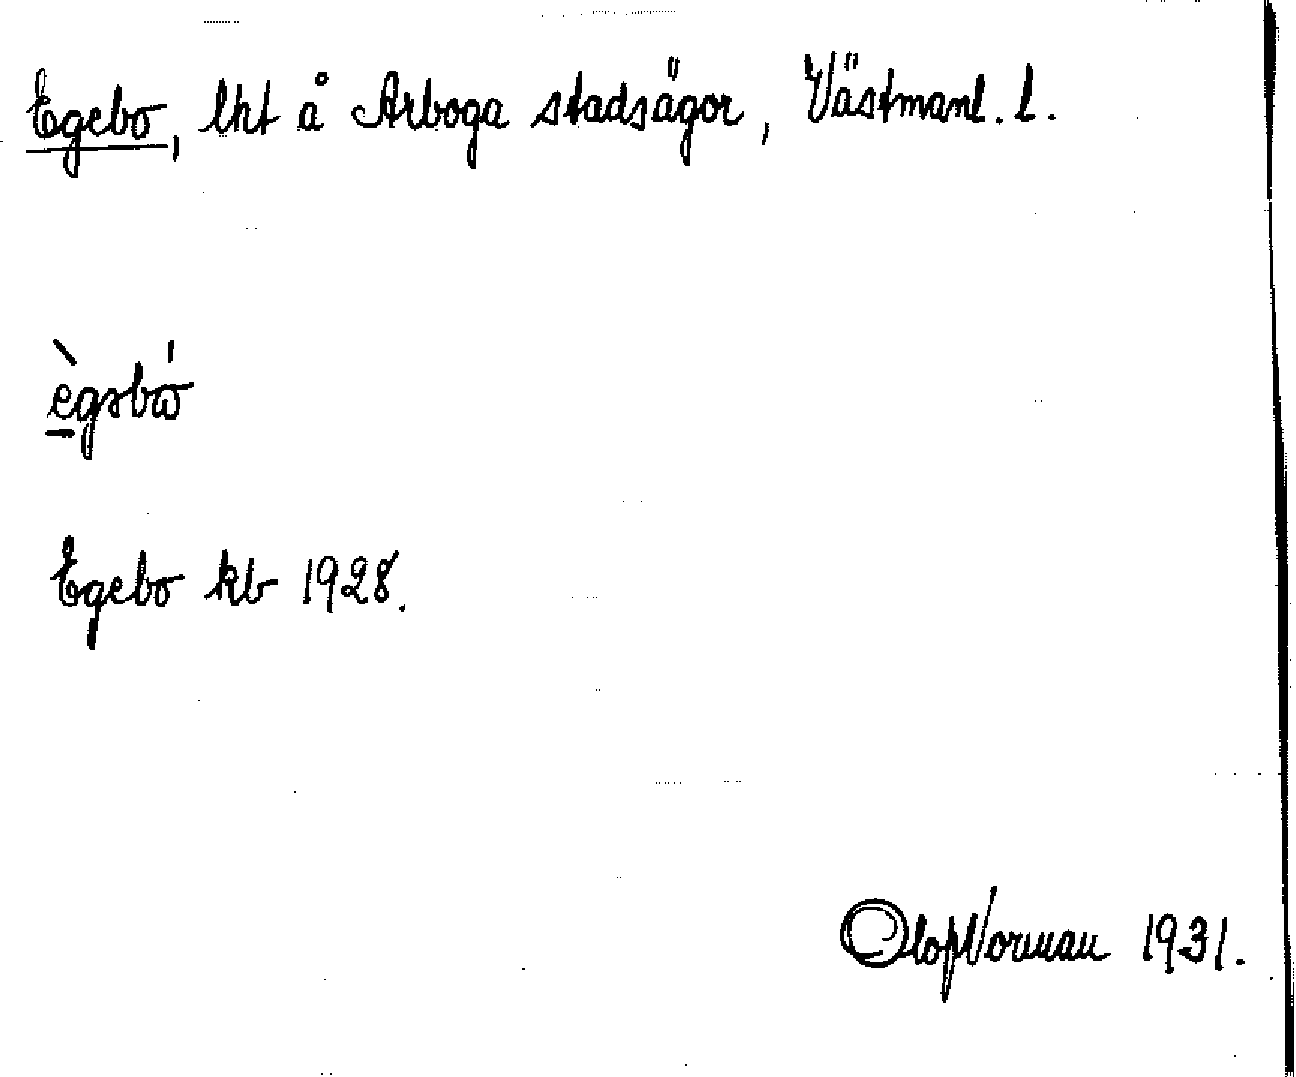 Egebo, lht å Arboga stadsägor, Västmanl. l.
è̲gəbω̍
Egebo kb 1928.
Olof Norman 1931.